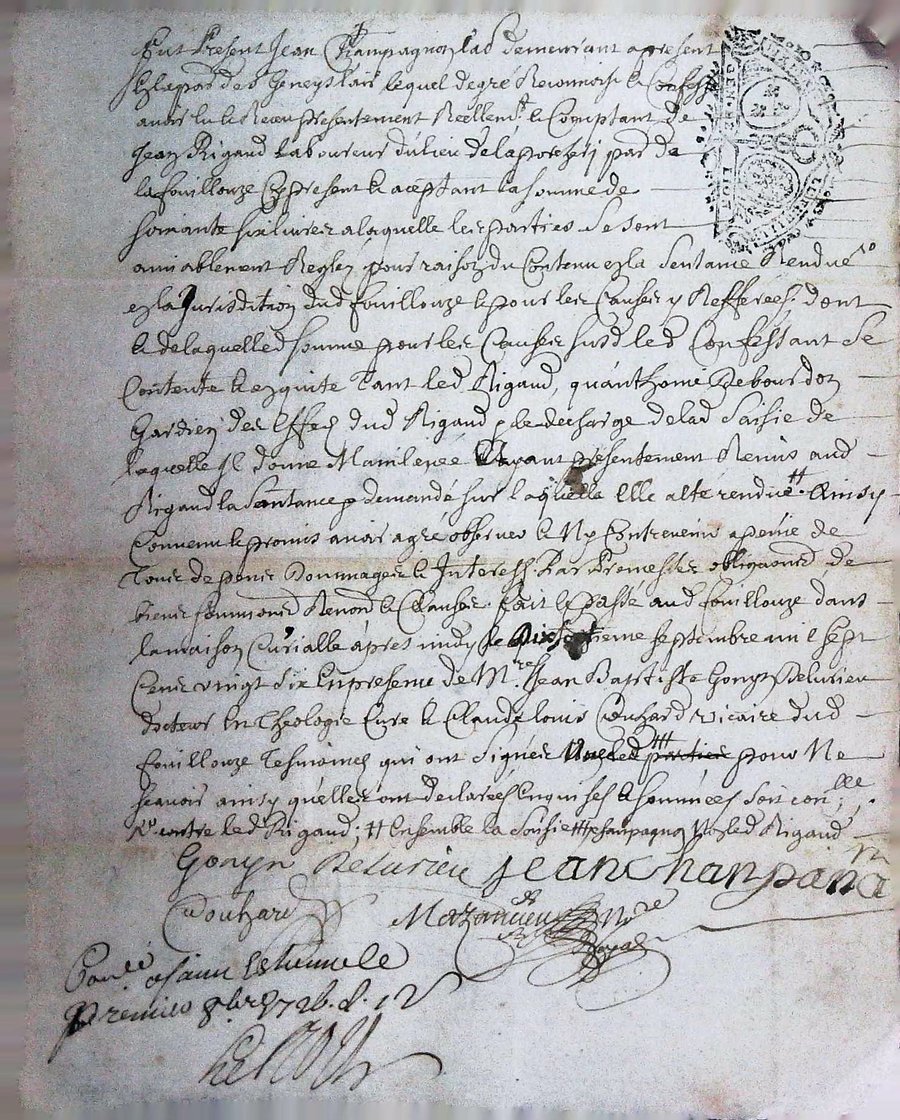 Fut Present Jean Champagnon lad demeurant apresent
en la par de s Geneys lais lequel de gré Reconnoist & Confesse
avoir eu & Receu presentement Reellemt & Comptant de
Jean Rigaud Laboureur du lieu de la par de
la fouillouze Cy present & aceptant la somme de
soixante six livres a laquelle les parties se sont
amiablement Reglez pour raison du Contenu en la Sentance Rendue
en la Jurisdition dud fouillouze & pour les Causes y Refferees. dont
& de laquelle d somme pour les Causes susd led Confessant se
Contente & en quite Tant led Rigaud, quanthoine Rebourdon
Gardien des Effets dud Rigaud p le decharge de lad Saisie de
laquelle Il donne Mainlevée Ayant presentement Remis aud
Rigaud la Santance p demandé sur laquelle Elle a été rendue. Ainsy
Convenu & promis avoir agré observer & Ny Contrevenir a peine de
Tous depens Dommages & Interests Par Promesses obligaons de
biens soumions Renons & Clauses. fait & passé aud fouillouze dans
la maison Curialle apres midy le dix septieme septembre mil sept
Cens vingt six En presence de Mres Jean Baptiste Gonyn Delurieu
docteur En Theologie Curé & Claude louis Couhard vicaire dud
fouillouze Tesmoins qui ont Signés Nonled parties pour Ne
scavoir ainsy qu'elles ont declarées Enquises & sommées
contre led Rigaud; Ensemble la Saisie champagnon Nonled Rigaud
Gonyn Delurieu Jean Chanpana
Couhard Mazancieu Nre
Royal
a st Estienne le
Premier 8bre 1726. R. 12 s